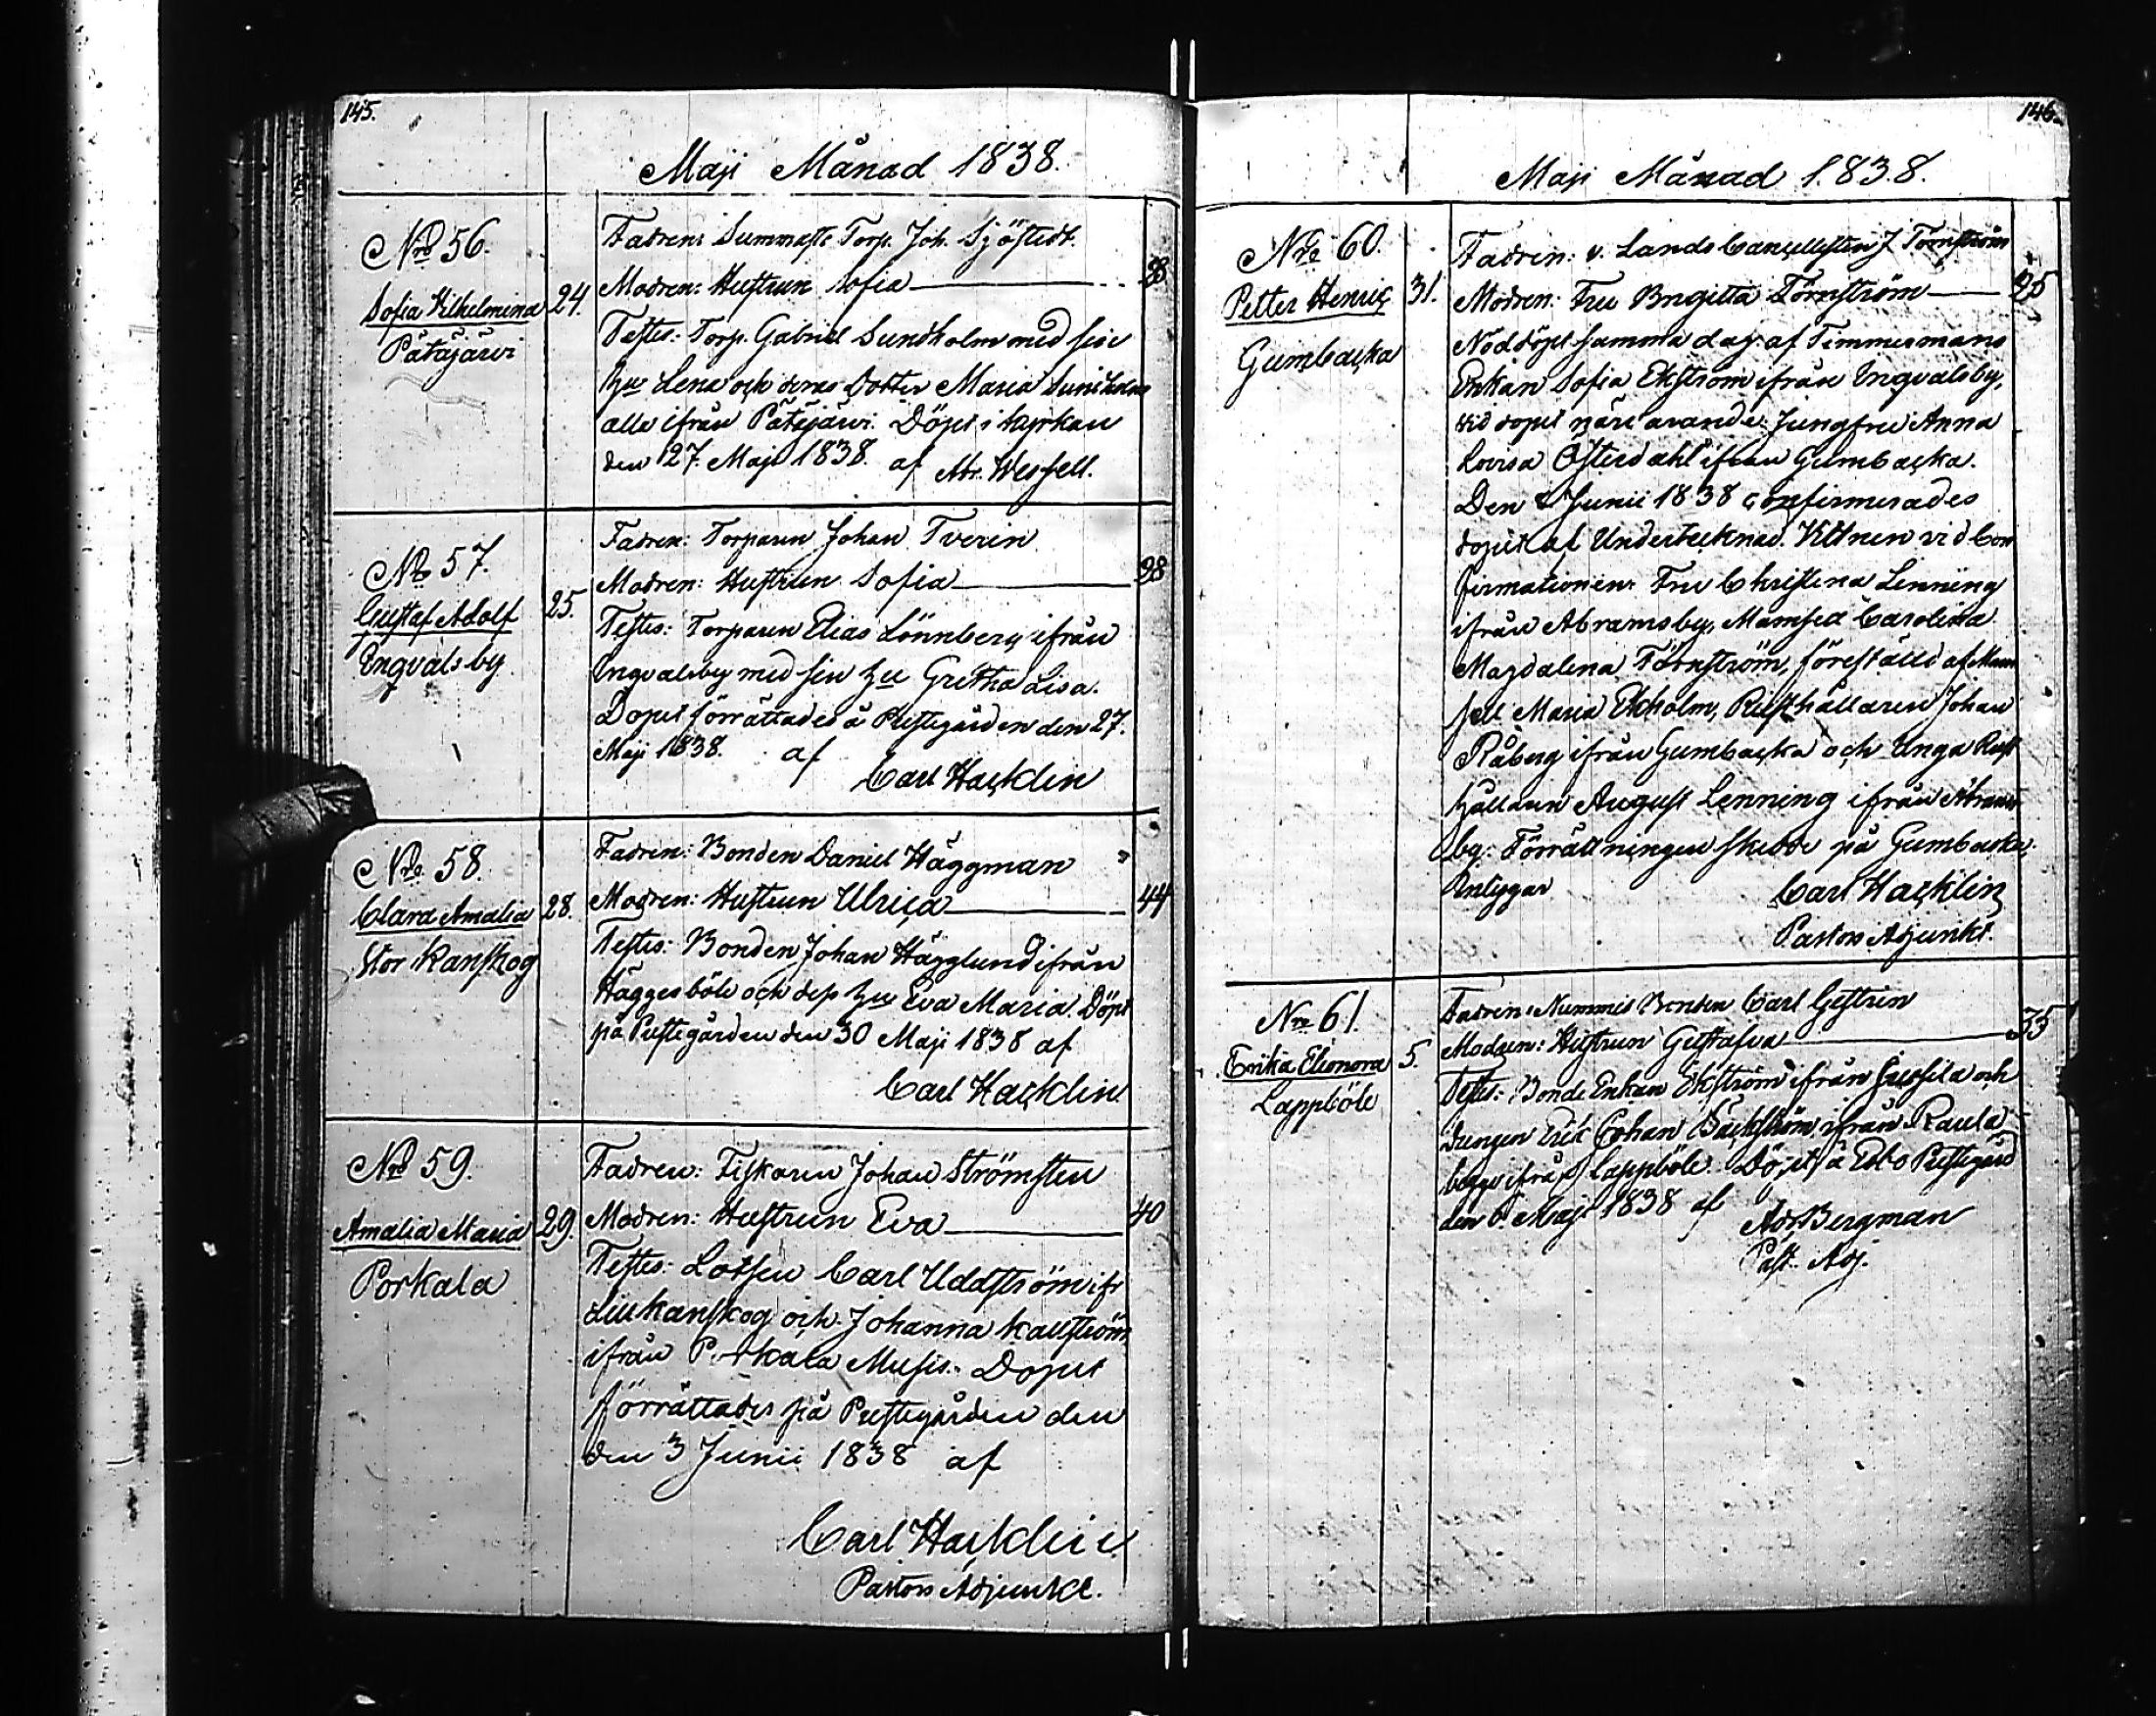 145.
Maji Månad 1838.
Nro 56.
Sofia Wilhelmina
Pätäjärvi
24.
Fadren: Torp. Joh. Sjöstedt.
Modren: Hustrun Sofia
38
Testes: Torp. Gabriel Sundholm med sin
hu Lena och deras Dotter Maria Sundholm
alla ifrån Pätäjärvi. Döpt i kyrkan
den 27. Maji 1838. af Abr. Wessell.
No 57.
Gustaf Adolf
Ingvalsby
25.
Fadren: Torparen Johan Tverin
Modren: Hustrun Sofia
28
Testes: Torparen Elias Lönnberg ifrån
Ingvalsby med sin hu Gretha Lisa.
Dopet förrättades å Prestegården den 27.
Maji 1838. af
Carl Hacklin
Nro 58.
Clara Amalia
Stor Kanskog
28.
Fadren: Bonden Daniel Häggman
Modren: Hustrun Ulrica
44
Testes: Bonden Johan Hägglund ifrån
Häggesböle och dess hu Eva Maria. Döpt
på Prestegården den 30 Maji 1838 af
Carl Hacklin
Nro 59.
Amalia Maria
Porkala
29.
Fadren: Fiskaren Johan Strömsten
Modren: Hustrun Eva
40
Testes: Lotsen Carl Uddström ifr
Liukanskog och Johanna Kallström
ifrån Porkala Dopet
förrättades på Prestegården den
den 3 Junii 1838 af
Carl Hacklin
Pastors Adjunkt.
146.
Maji Månad 1838.
Nro 60.
Petter Henric
Gumbacka
31.
Fadren: v. Lands Cancellisten J. Törnström
Modren: Fru Brigitta Törnström
25
Nöddöpt samma dag af Timmermans
Enkan Sofia Ekström ifrån Ingvalsby,
vid dopet närvarande: Jungfru Anna
Lovisa Österdahl ifrån Gumbacka.
Den Junii 1838 confirmerades
dopet af Undertecknad. Vittnen vid Con
firmationen: Fru Christina Lenning
ifrån Abramsby, Mamsell Carolina
Magdalena Törnström, föreställd af Mam
sell Maria Ekholm, Rusthållaren Johan
Råberg ifrån Gumbacka och Unga Rust
hållaren August Lenning ifrån Abrams
by. Förrättningen skedde på Gumbacka,
intygar Carl Hacklin
Pastors Adjunkt.
Nro 61.
Erika Elionora
Lappböle
5.
Fadren: Bonden Carl Gestrin
Modren: Hustrun Gustafva
35
Testes: Bonde Enkan Ekström ifrån och
Drengen Eric Johan Bäckström ifrån
begge ifrån Lappböle. Döpt å Esbo Prestegård
den 6. Maji 1838 af Bergman
Past. Adj.